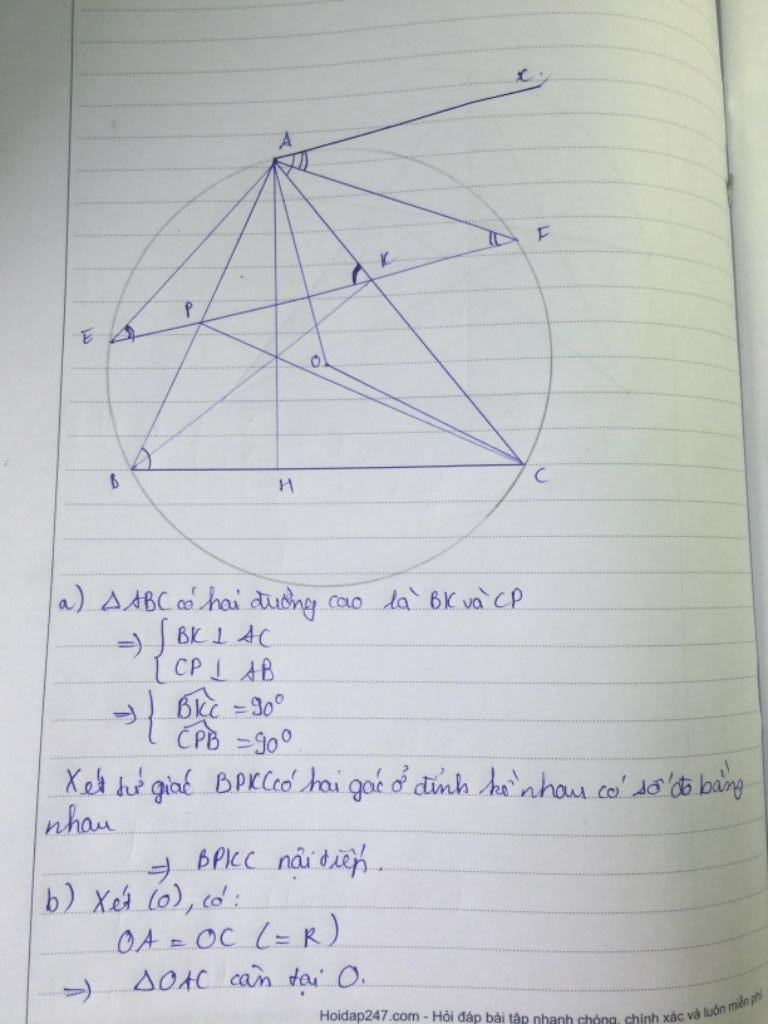 x
A
F
K
P
E
O
B
H
C
a) ΔABC có hai đường cao là BK và CP
=> { BK ⊥ AC
CP ⊥ AB
=> { BKC = 90°
CPB = 90°
Xét tứ giác BPKC có hai góc ở đỉnh kề nhau có số đo bằng
nhau
=> BPKC nội tiếp.
b) Xét (O), có:
OA = OC (= R)
=> ΔOAC cân tại O.
Hoidap247.com - Hỏi đáp bài tập nhanh chóng, chính xác và luôn miễn phí